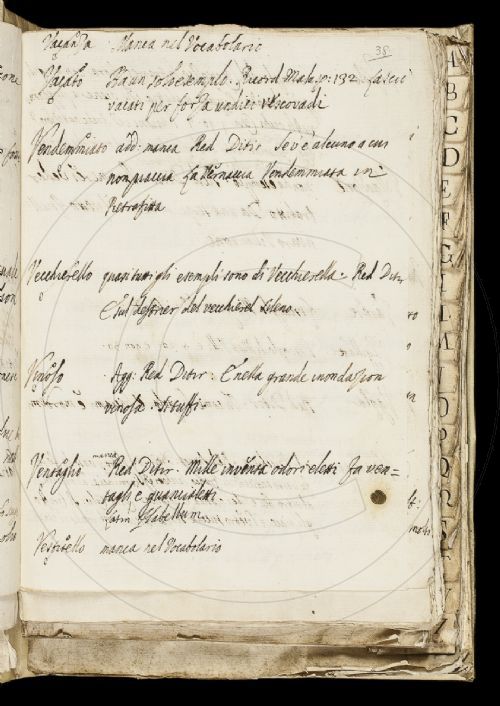 Vacanza Manca nel Vocabolario
38
Vacato Ha un solo esempio. Ricord Malesp: 132 fa seci
vacati per forza undici vescovadi
Vendemmiato add: manca Red Ditir Se v'è alcuno a cui
non piaccia La Vernaccia Vendemmiata in
Pietrafitta
Vecchierello quasi tutti gli esempli sono di Vecchierella. Red Ditir
E sul destrier del vecchierel Sileno
Vinoso Agg: Red Ditir: E nella grande inondazion
vinosa: Si tuffi
Ventaglio manca Red Ditir. Mille inventa odori eletti Fa ven=
tagli e guancialetti
latin Flabellum
Vestitello manca nel Vocabolario
A
B
C
D
E
F
G
I
L
M
N
O
P
Q
R
S